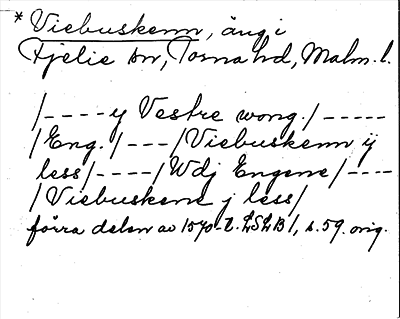 * Viebuskenn, äng i
Fjelie sn, Torna hd, Malm. l.
/- - - - y Vestre wong./- - - - -
/Eng./- - -/Viebuskenn ij
less/- - - -/Wdj Engene/- - - -
/Viebuskene j less/
förra delen av 1570-t. LSLB 1, s. 59. orig.